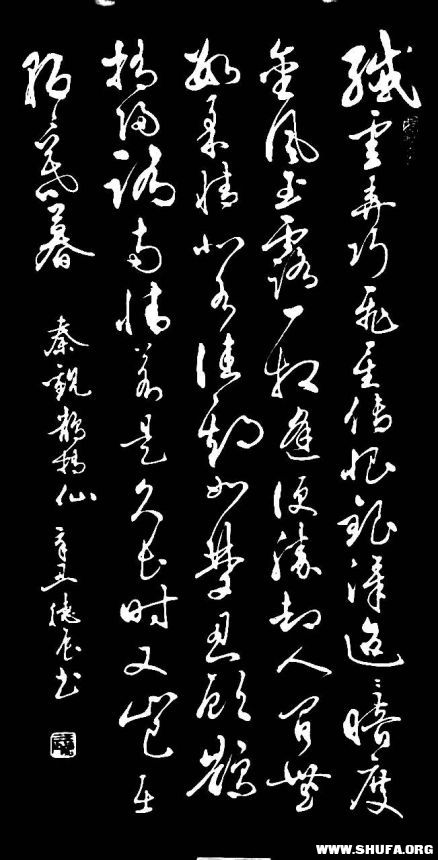 纖雲弄巧飛星傳恨銀漢迢〻暗度
金風玉露一相逢便勝却人間無
數柔情似水佳期如夢忍顧鵲
橋歸路兩情若是久長時又豈在
朝〻暮暮
秦觀鵲橋仙 辛丑德辰书
WWW.SHUFA.ORG